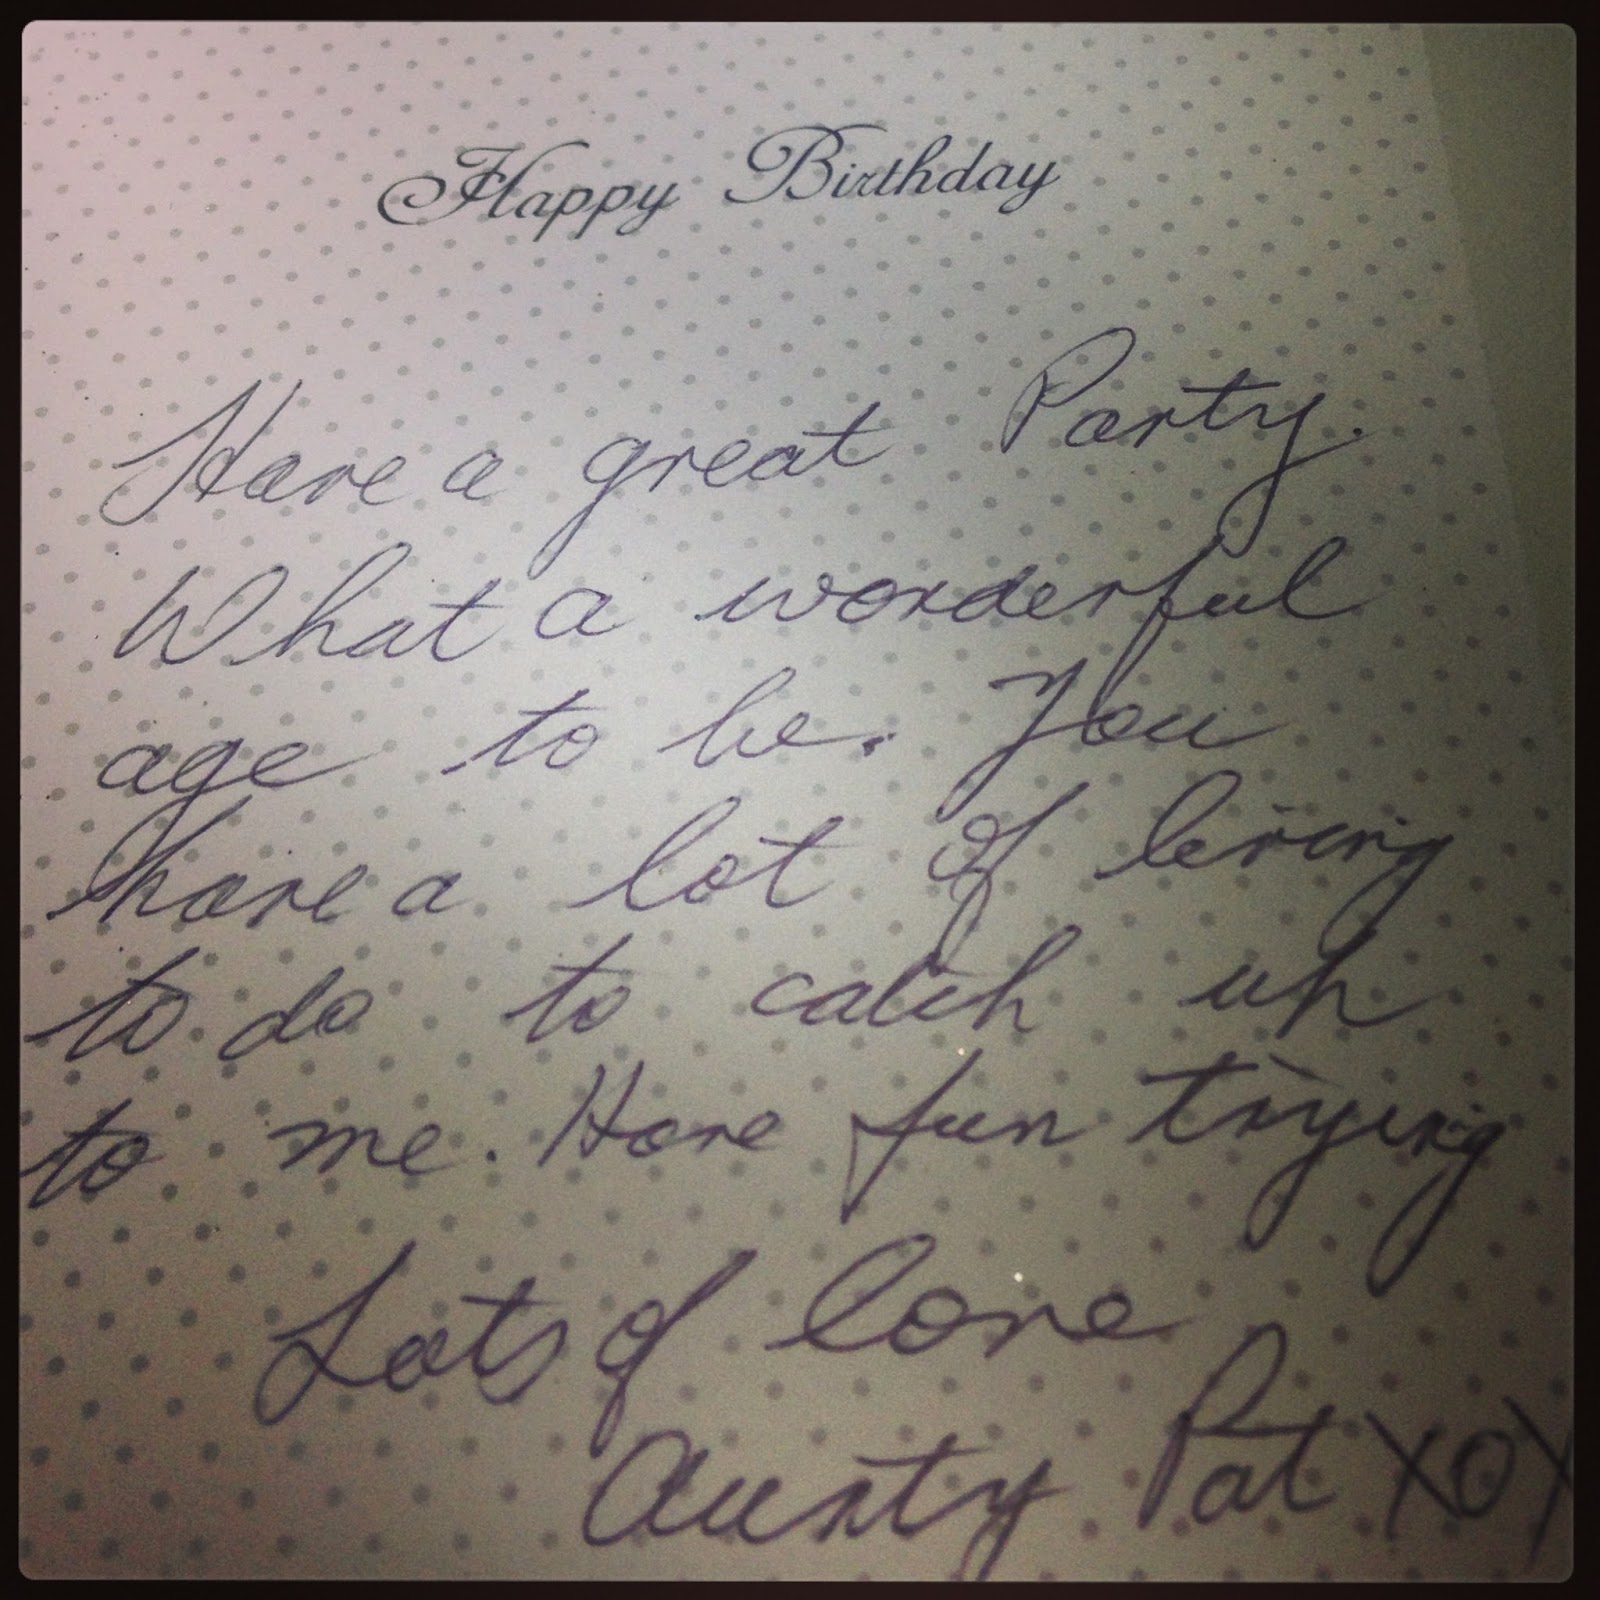 Happy Birthday
Have a great Party.
What a wonderful
age to be. You
have a lot of living
to do to catch up
to me. Have fun trying
Lots of love
Aunty Pat XOX